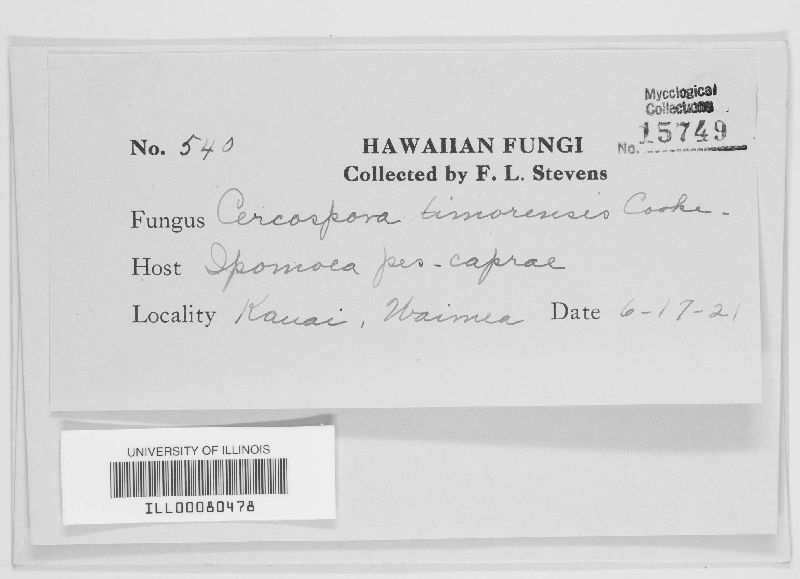 Mycological
Collections
No. 15749
No. 540
HAWAIIAN FUNGI
Collected by F. L. Stevens
Fungus Cercospora timorensis Cooke.
Host Ipomoea pes-caprae
Locality Kauai, Waimea Date 6-17-21
UNIVERSITY OF ILLINOIS
ILL00080478